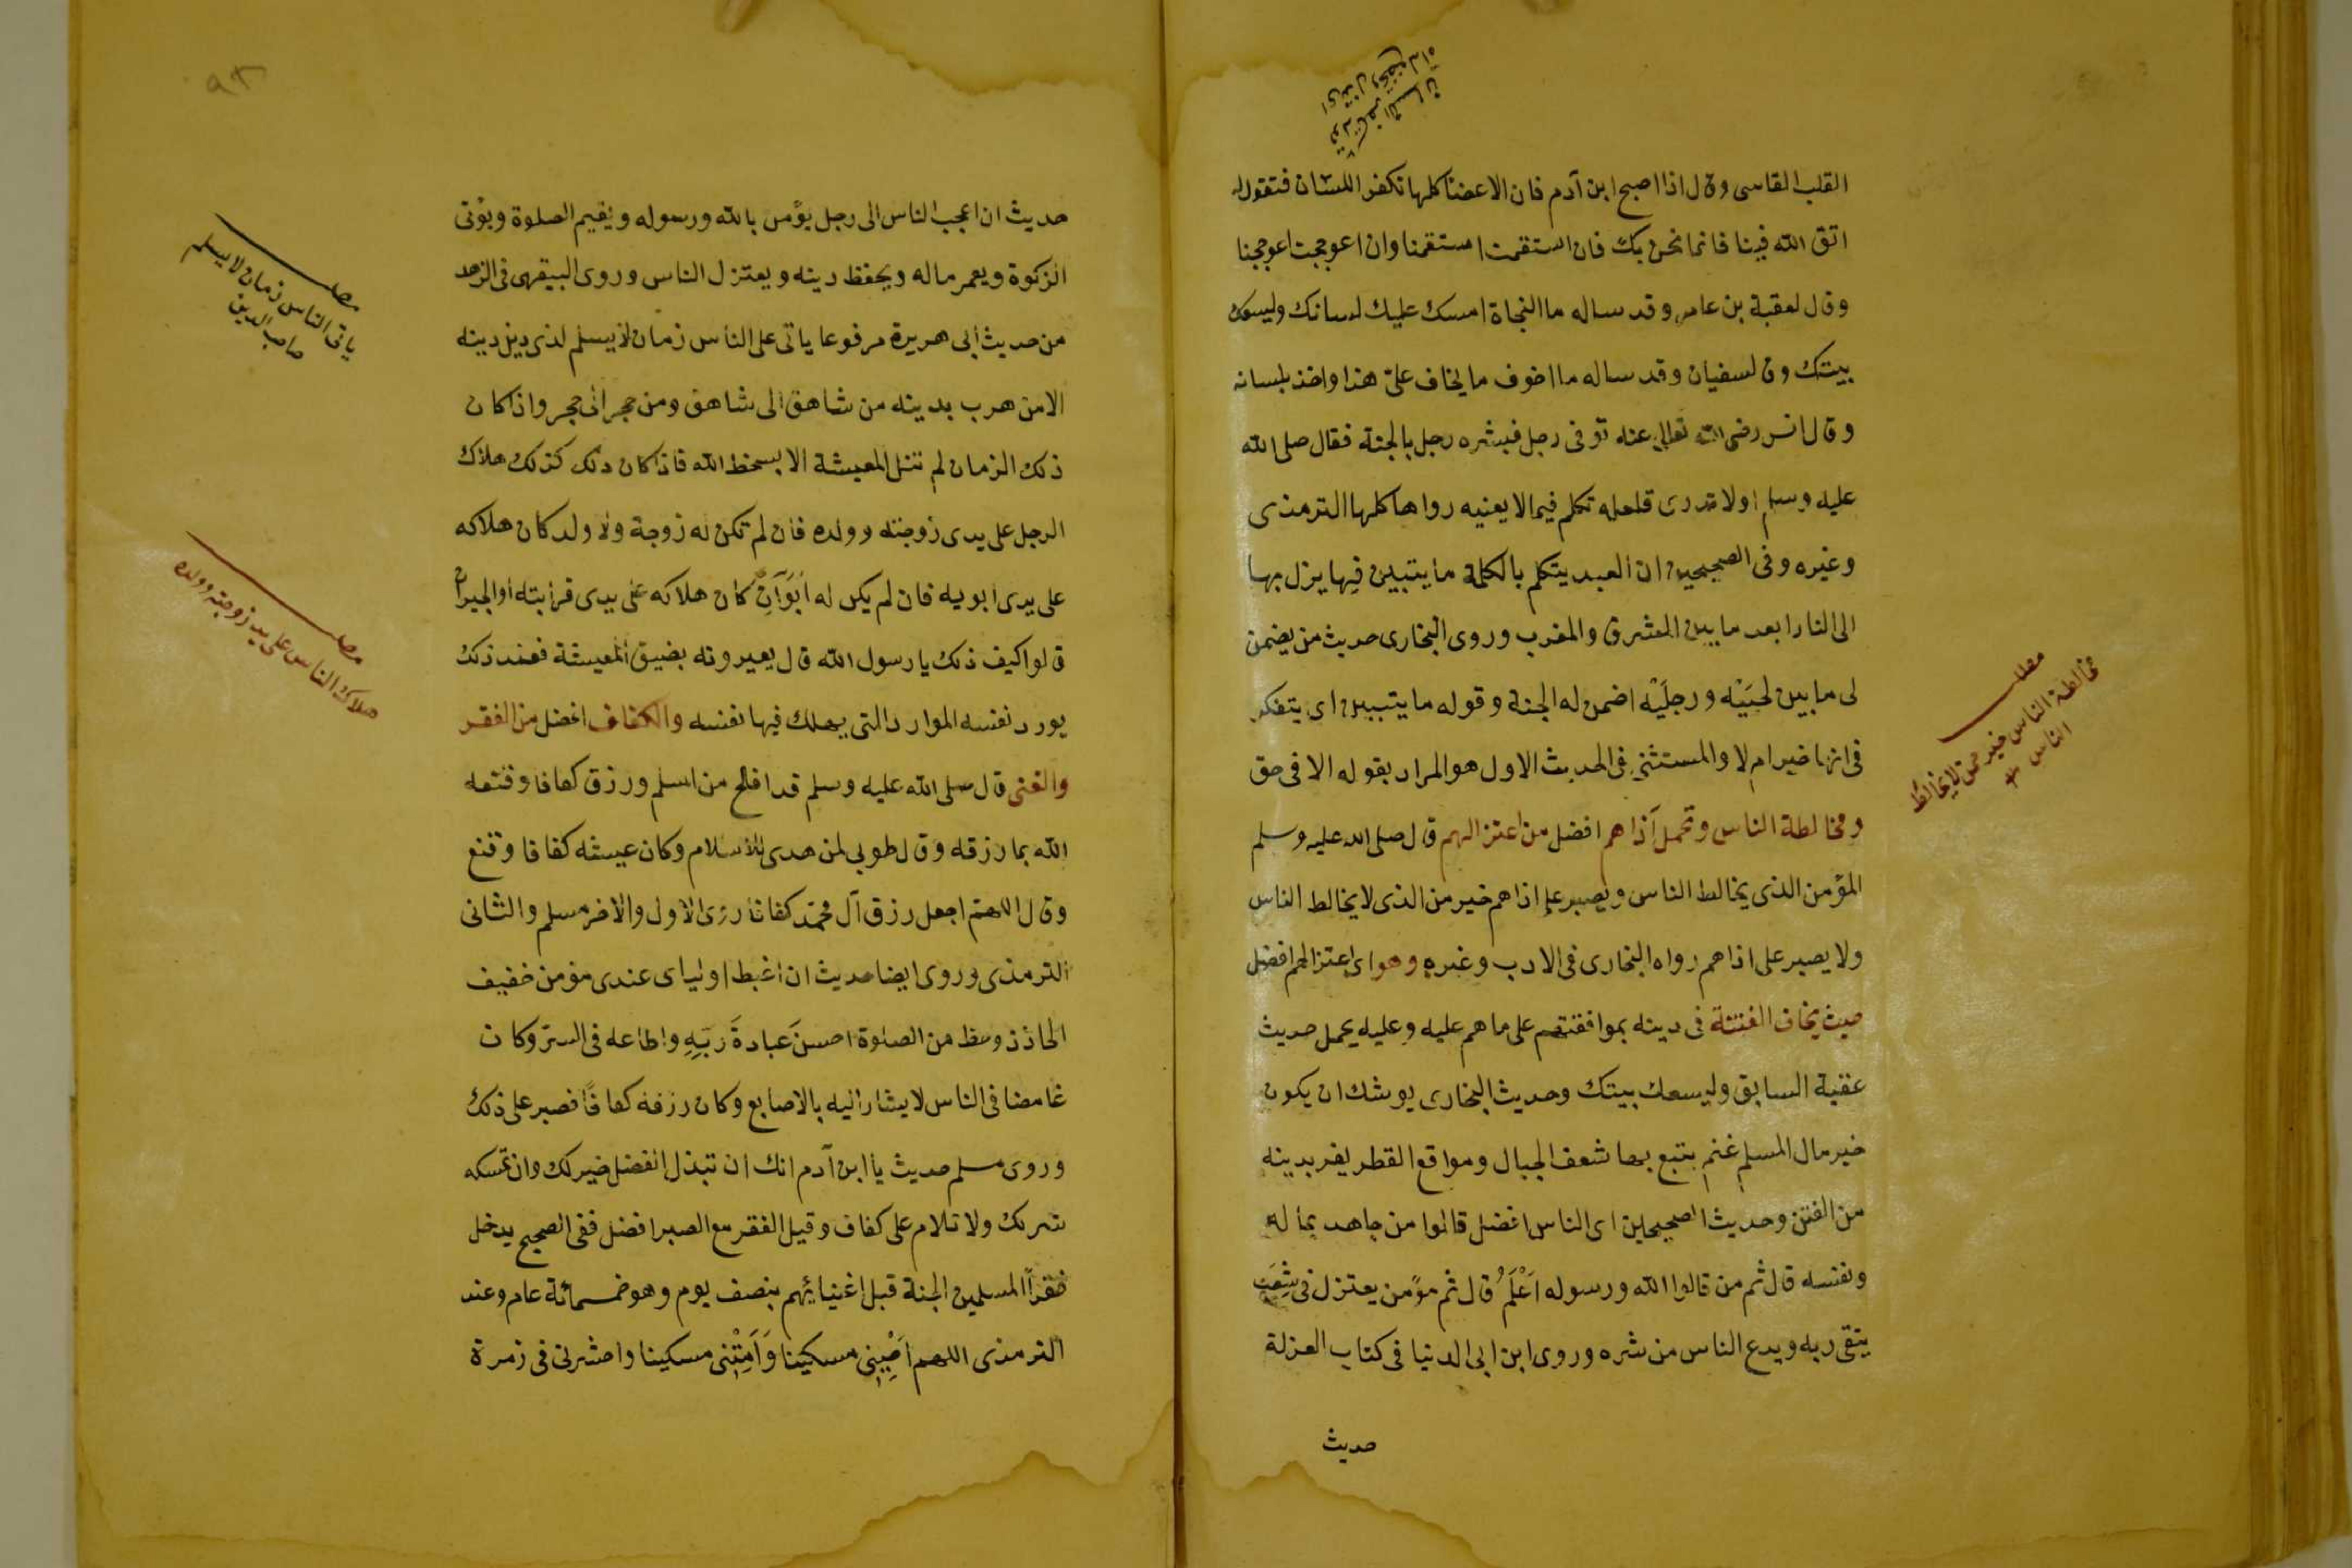 القلب القاسى وقال اذا اصبح ابن آدم فان الاعضا كلها تكفر اللسان فتقول له
اتق الله فينا فانما نحن بك فان استقمت استقمنا وان اعوججت اعوججنا
وقال لعقبة بن عامر وقد ساله ما النجاة امسك عليك لسانك وليسعك
بيتك وقال لسفيان وقد ساله ما اخوف ما يخاف علىّ هذا واخذ بلسانه
وقال انس رضى الله تعالى عنه توفى رجل فبشره رجل بالجنة فقال صلى الله
عليه وسلم اولا تدرى فلعله تكلم فيما لا يعنيه رواها كلها الترمذى
وغيره وفى الصحيحين ان العبد يتكلم بالكلمة ما يتبين فيها يزل بها
الى النار ابعد ما بين المشرق والمغرب وروى البخارى حديث من يضمن
لى ما بين لحيَيْه ورجلَيْه اضمن له الجنة وقوله ما يتبين اى يتفكر
فى انها خير ام لا والمستثنى فى الحديث الاول هو المراد بقوله الا فى حق
ومخالطة الناس وتحمل آذاهم افضل من اعتزالهم قال صلى الله عليه وسلم
المؤمن الذى يخالط الناس ويصبر على اذاهم خير من الذى لا يخالط الناس
ولا يصبر على اذاهم رواه البخارى فى الادب وغيره وهو اى اعتزالهم افضل
حيث يخاف الفتنة فى دينه بموافقتهم على ما هم عليه وعليه يحمل حديث
عقبة السابق وليسعك بيتك وحديث البخارى يوشك ان يكون
خير مال المسلم غنم يتبع بها شعف الجبال ومواقع القطر يفر بدينه
من الفتن وحديث الصحيحين اى الناس افضل قالوا من جاهد بماله
ونفسه قال ثم من قالوا الله ورسوله اَعْلَمُ قال ثم مؤمن يعتزل فى شِعَبٍ
يتقى ربه ويدع الناس من شره وروى ابن ابى الدنيا فى كتاب العزلة
حديث
مطلب
مخالطة الناس خير ممن لا يخالط
الناس
حديث ان اعجب الناس الى رجل يؤمن بالله ورسوله ويقيم الصلوة ويؤتى
الزكوة ويعمر ماله ويحفظ دينه ويعتزل الناس وروى البيقهى فى الزهد
من حديث ابى هريرة مرفوعا ياتى على الناس زمان لا يسلم لذى دين دينه
الا من هرب بدينه من شاهق الى شاهق ومن حجر الى حجر واذا كان
ذلك الزمان لم تنل المعيشة الا بسخط الله فاذا كان ذلك كذلك هلاك
الرجل على يدى زوجته وولده فان لم تكن له زوجة ولا ولد كان هلاكه
على يدى ابويه فان لم يكن له اَبَوَانِ كان هلاكه على يدى قرابته او الجيران
قالوا كيف ذلك يا رسول الله قال يعيرونه بضيق المعيشة فعند ذلك
يورد نفسه الموارد التى يهلك فيها نفسه والكفاف افضل من الفقر
والغنى قال صلى الله عليه وسلم قد افلح من اسلم ورزق كفافا وقنعه
الله بما رزقه وقال طوبى لمن هدى للاسلام وكان عيشه كفافا وقنع
وقال اللهم اجعل رزق آل محمد كفافا روى الاول والاخر مسلم والثانى
الترمذى وروى ايضا حديث ان اغبط اوليائ عندى مؤمن خفيف
الحاذ ذو حظ من الصلوة احسنَ عبادةَ ربّهِ واطاعه فى السرّ وكان
غامضا فى الناس لا يشار اليه بالاصابع وكان رزقه كفافًا فصبر على ذلك
وروى مسلم حديث يا ابن آدم انك ان تبذل الفضل خير لك وان تمسكه
شر لك ولا تلام على كفاف وقيل الفقر مع الصبر افضل ففى الصحيح يدخل
فقرآ المسلمين الجنة قبل اغنيائهم بنصف يوم وهو خمسمائة عام وعند
الترمذى اللهم اَحْيِنِى مسكينا وَاَمِتْنِى مسكينا واحشرنى فى زمرة
مطلب
ياتى الناس زمان لا يسلم
صاحب الدين
مطلب
هلاك الناس على يد زوجته وولده